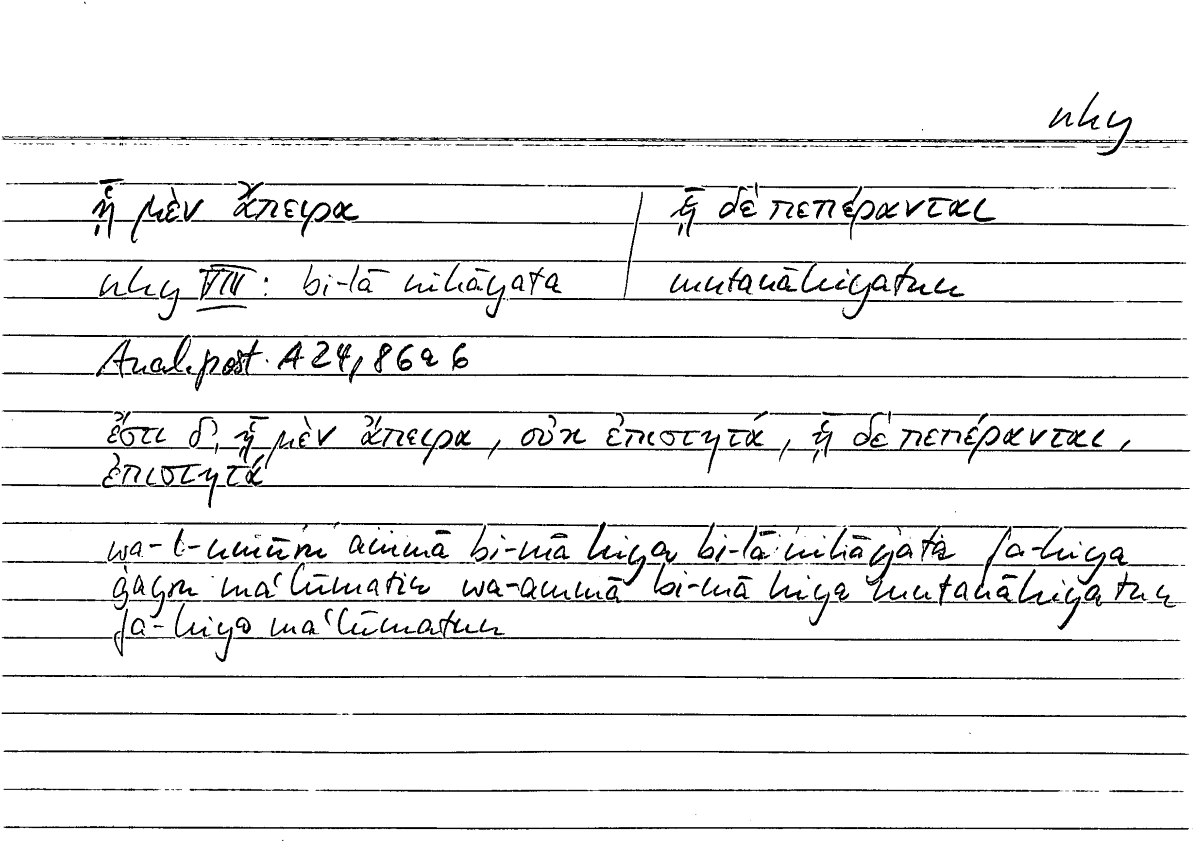 nhy
ᾗ μὲν ἄπειρα | ᾗ δὲ πεπέρανται
nhy VIII : bi-lā nihāyata | mutanāhiyatun
Anal. post. A 24, 86a6
ἔστι δ᾽, ᾗ μὲν ἄπειρα, οὐκ ἐπιστητά, ᾗ δὲ πεπέρανται,
ἐπιστητά
wa-l-umūru ammā bi-mā hiya bi-lā nihāyata fa-hiya
ġayru maʿlūmatin wa-ammā bi-mā hiya mutanāhiyatun
fa-hiya maʿlūmatun